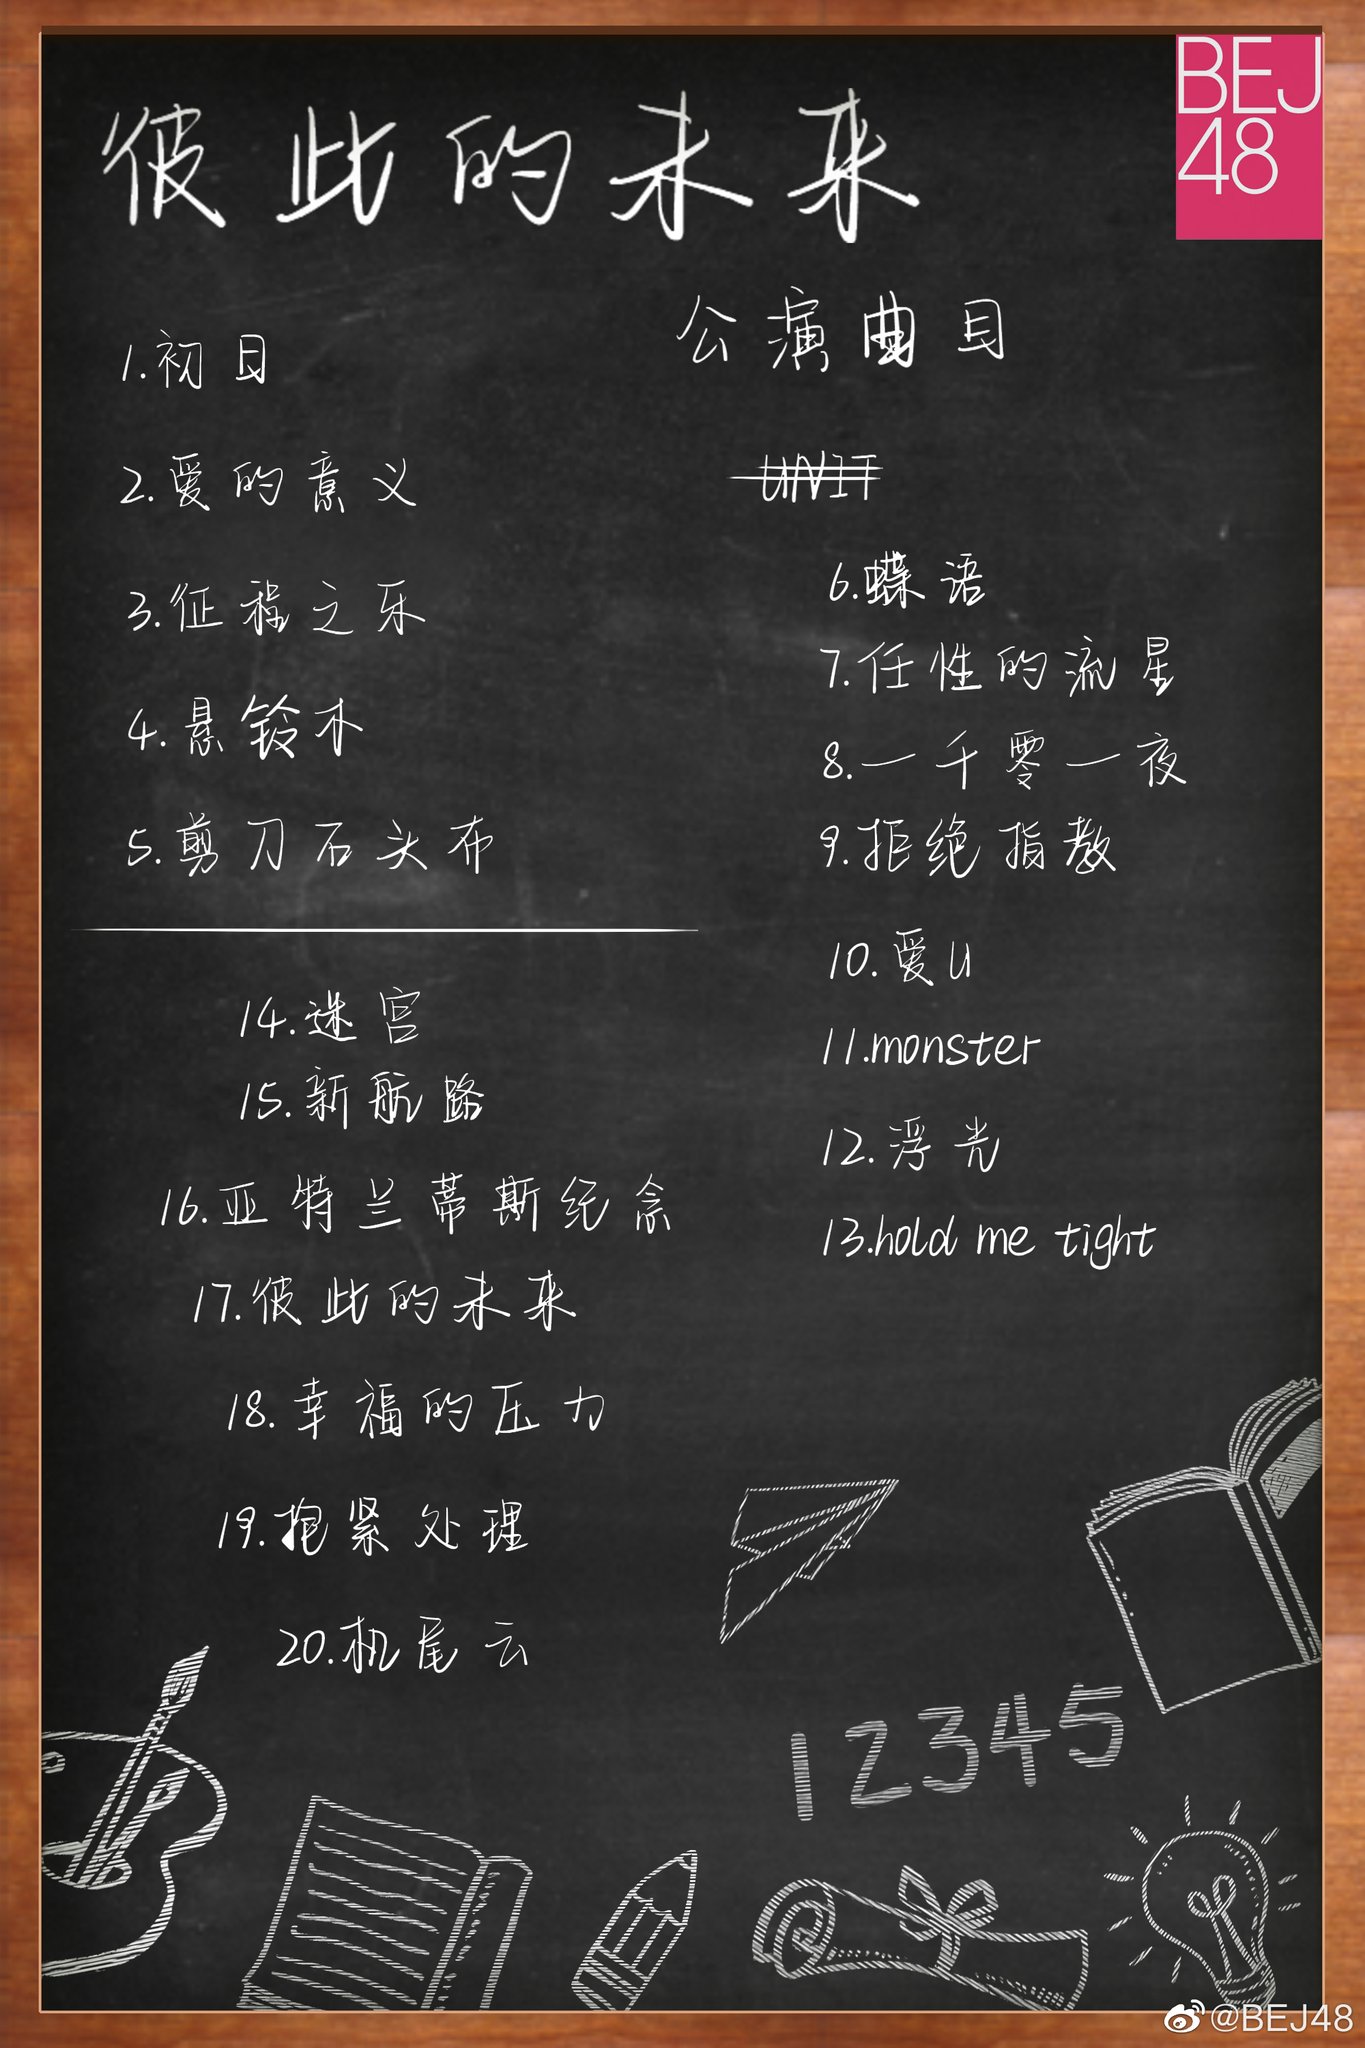 彼此的未来
BEJ
48
公演曲目
1.初日
2.爱的意义
3.征程之乐
4.悬铃木
5.剪刀石头布
UNIT
6.蝶语
7.任性的流星
8.一千零一夜
9.拒绝指教
10.爱U
11.monster
12.浮光
13.hold me tight
14.迷宫
15.新航路
16.亚特兰蒂斯纪念
17.彼此的未来
18.幸福的压力
19.抱紧处理
20.机尾云
12345
@BEJ48